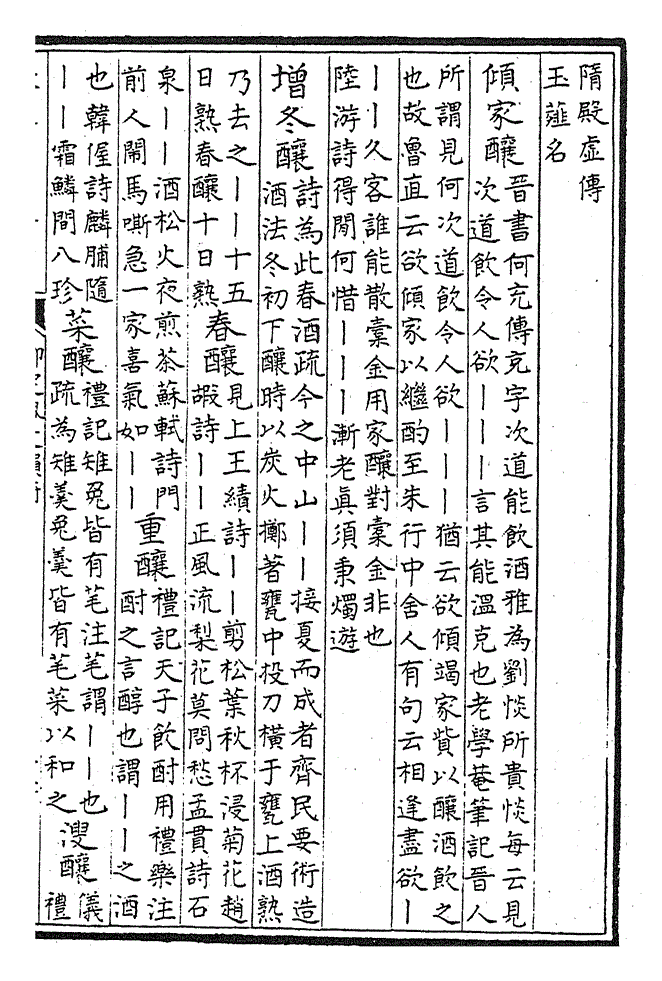 隋殿虛傳
玉薤名
傾家釀晉書何充傳充字次道能飲酒雅為劉惔所貴惔每云見
次道飲令人欲｜｜｜言其能溫克也老學菴筆記晉人
所謂見何次道飲令人欲｜｜｜猶云欲傾竭家貲以釀酒飲之
也故魯直云欲傾家以繼酌至朱行中舍人有句云相逢盡欲｜
｜｜久客誰能散橐金用家釀對橐金非也
陸游詩得閒何惜｜｜｜漸老真須秉燭遊
增冬釀詩為此春酒疏今之中山｜｜接夏而成者齊民要術造
酒法冬初下釀時以炭火擲著甕中投刀橫于甕上酒熟
乃去之｜｜十五
日熟春釀十日熟
春釀見上王績詩｜｜剪松葉秋杯浸菊花趙
嘏詩｜｜正風流梨花莫問愁孟貫詩石
泉｜｜酒松火夜煎茶蘇軾詩門
前人鬧馬嘶急一家喜氣如｜｜
重釀禮記天子飲酎用禮樂注
酎之言醇也謂｜｜之酒
也韓偓詩麟脯隨
｜｜霜鱗間八珍
菜釀禮記雉兔皆有芼注芼謂｜｜也
疏為雉羹兔羹皆有芼菜以和之
溲釀儀
禮